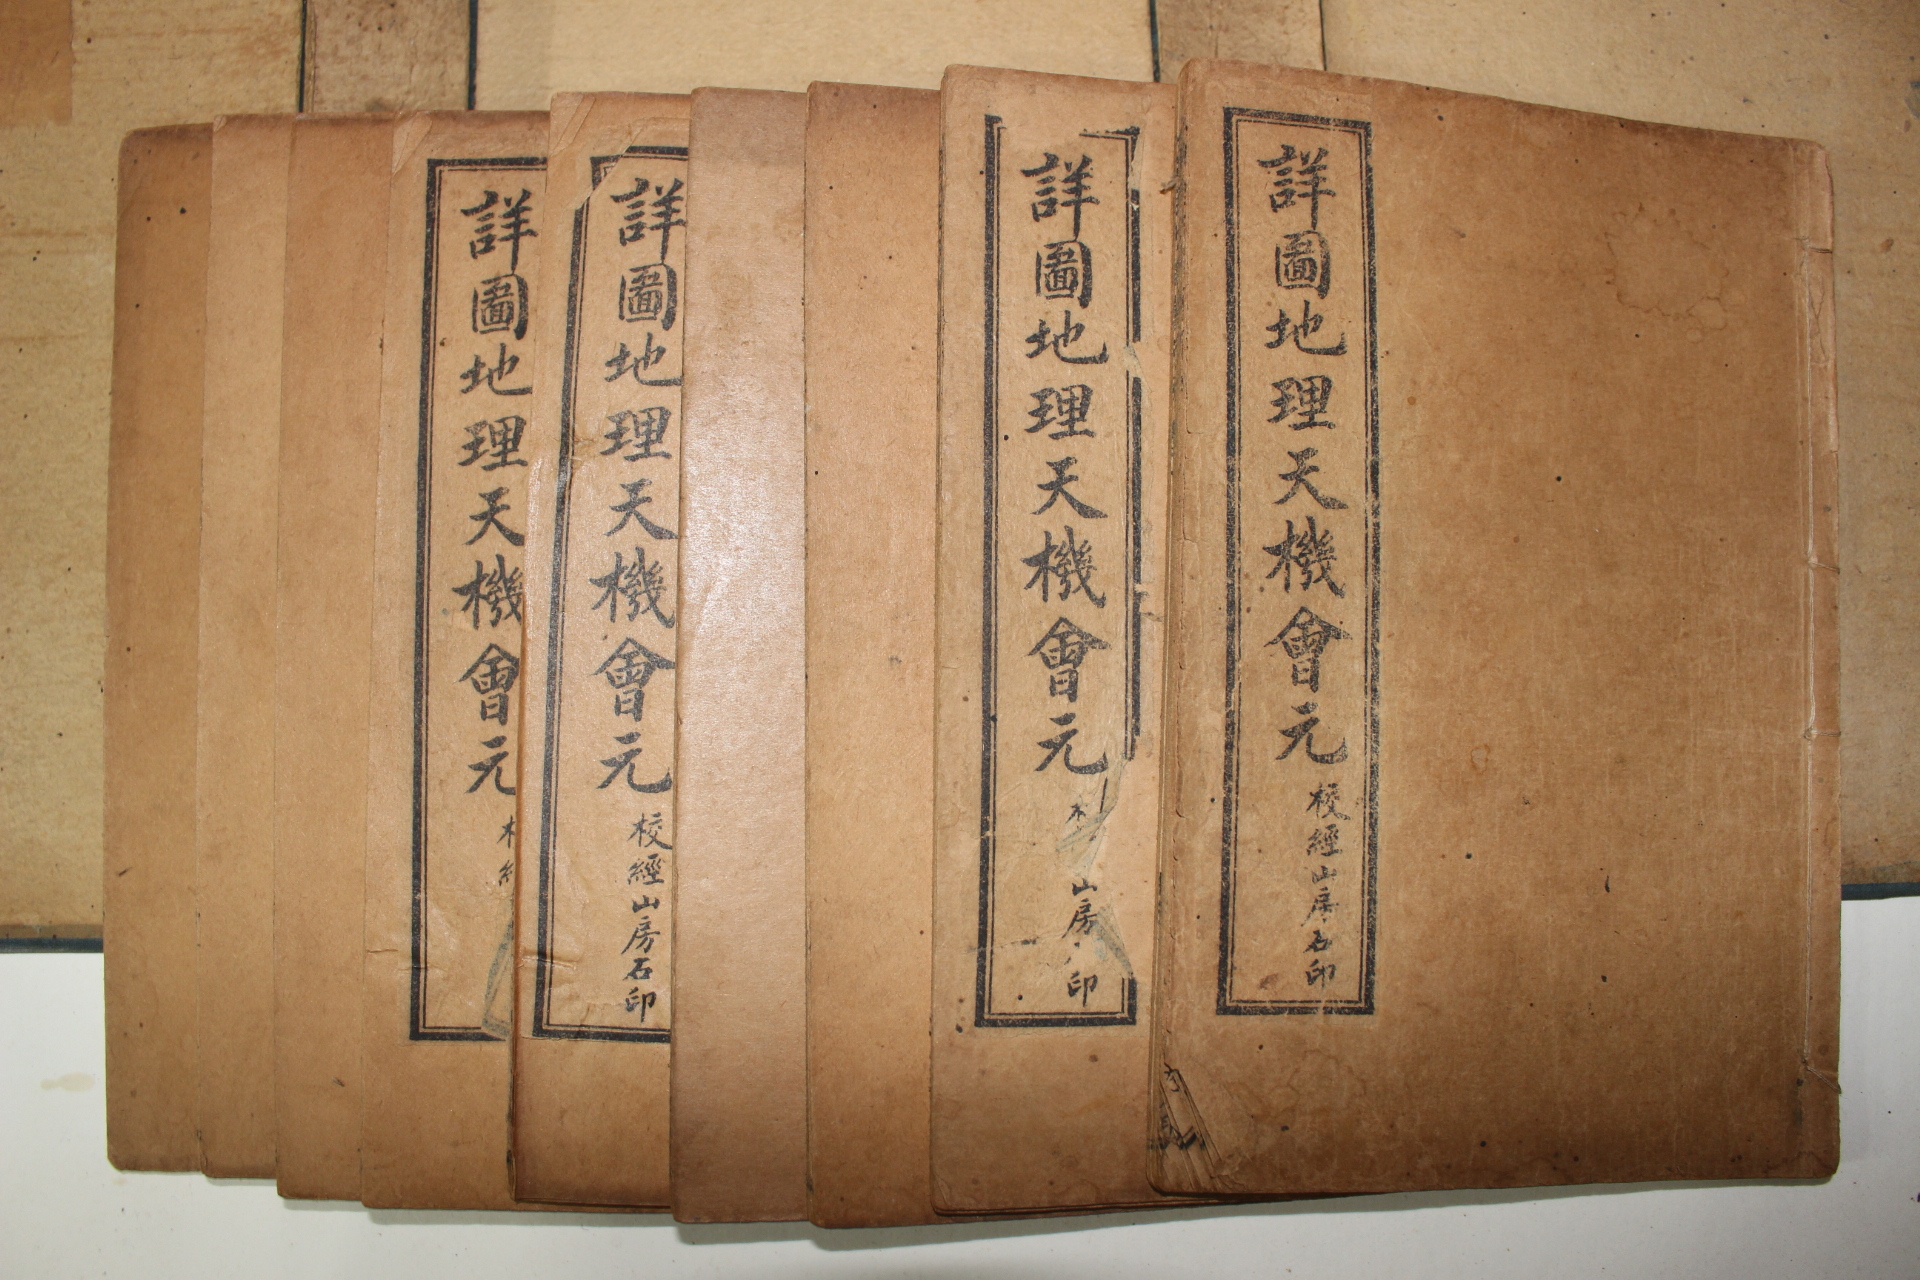 詳圖地理天機會元 校經山房石印
詳圖地理天機會元 山房 印
詳圖地理天機會元 校經山房石印
詳圖地理天機會元